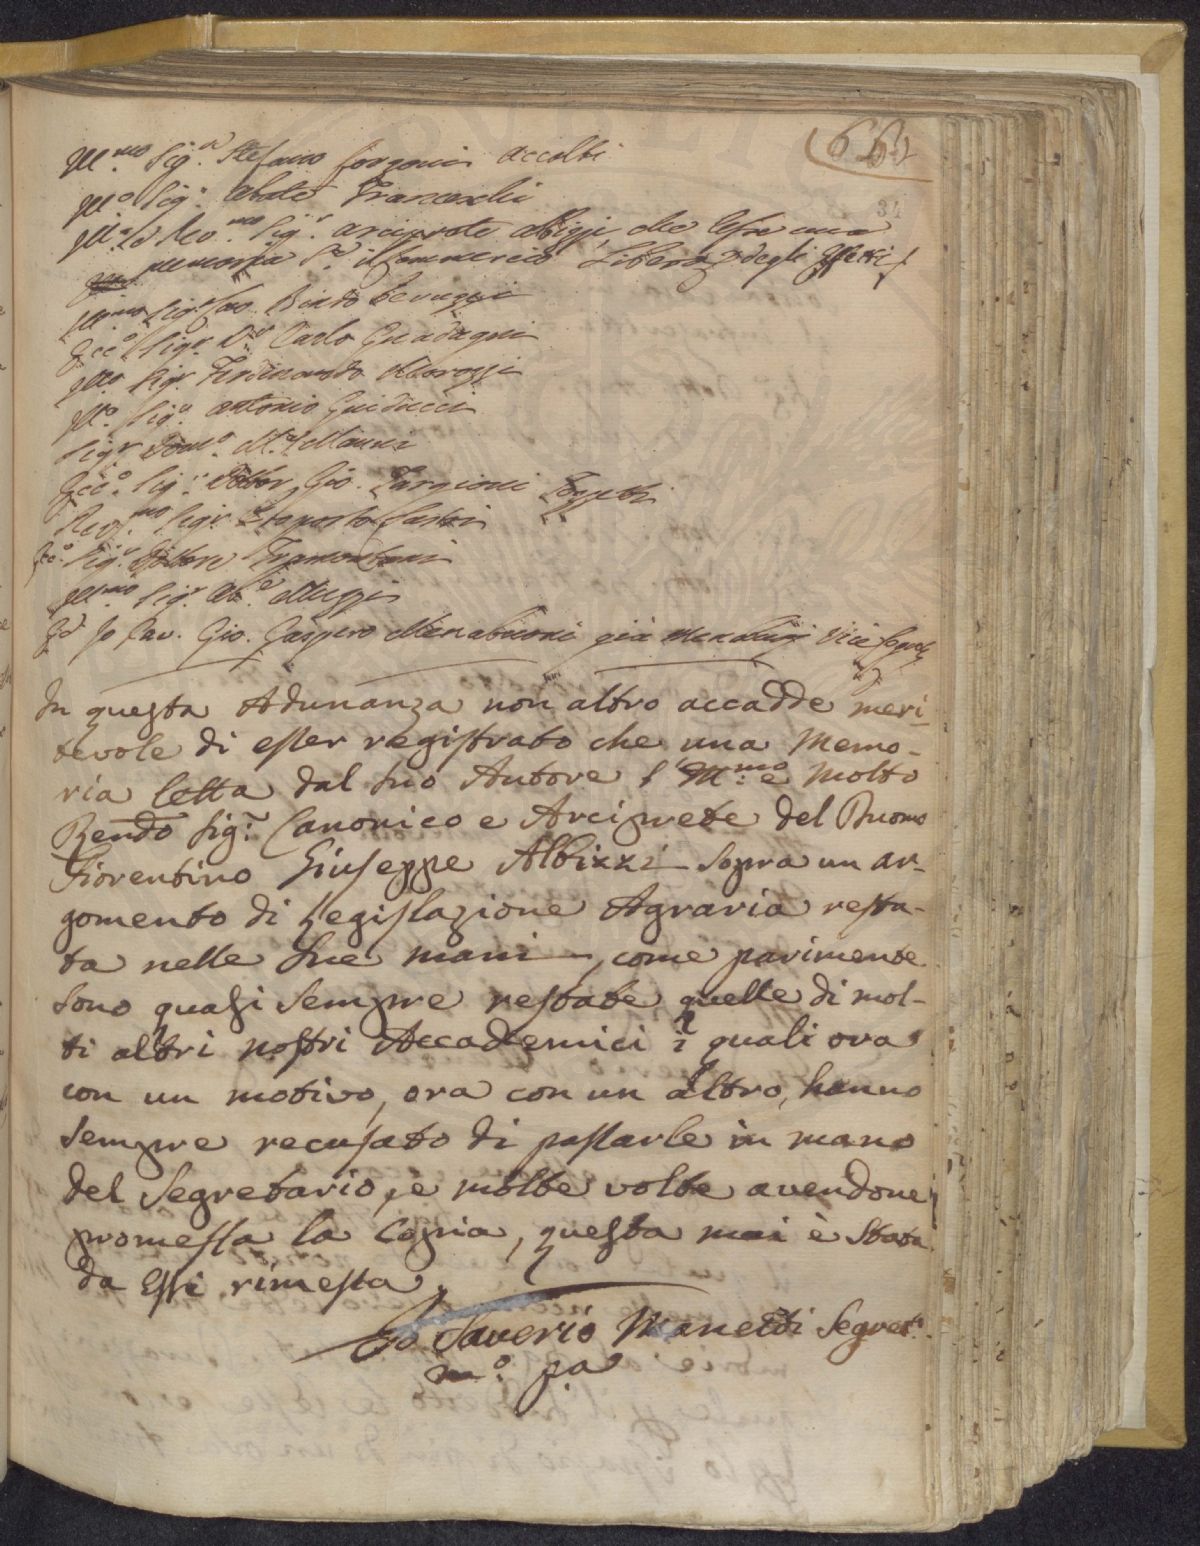 (66)
34
Ill.mo Sig.r Stefano Sorgoni Accolti
Ill.o Sig.r Abate Franceschi
Ill.o e Rev.mo Sig.r Arciprete Albizzi, che lesse una
memoria S.a il Commercio Libero degli
Ill.mo Sig.r Cav. Bindo Peruzzi
Ecc.o Sig.r D.re Carlo Guadagni
Ill.o Sig.r Ferdinando Morozzi
Ill.o Sig.r Antonio Guiducci
Sig.r Dom.o M.a Manni
Ecc.o Sig.r Dottor Gio. Targioni Tozzetti
Rev.mo Sig.r Proposto Lastri
Ecc.o Sig.r Dottore Tramontani
Ill.mo Sig.r Ab.e Muzzi
Ed Io Cav. Gio. Gaspero Menabuoni già Menabuoi Vice Segret.
In questa Adunanza non altro accadde meri-
tevole di esser registrato che una Memo-
ria letta dal suo Autore l'Ill.mo e Molto
Rendo Sig.r Canonico e Arciprete del Duomo
Fiorentino Giuseppe Albizzi sopra un ar-
gomento di Legislazione Agraria resta-
ta nelle sue mani, come parimente
sono quasi sempre restate quelle di mol-
ti altri nostri Accademici i quali ora
con un motivo, ora con un altro, hanno
sempre recusato di passarle in mano
del Segretario, e molte volte avendone
promessa la Copia, questa mai è stata
da Essi rimessa.
Io Saverio Manetti Segret.o
m.o p.a